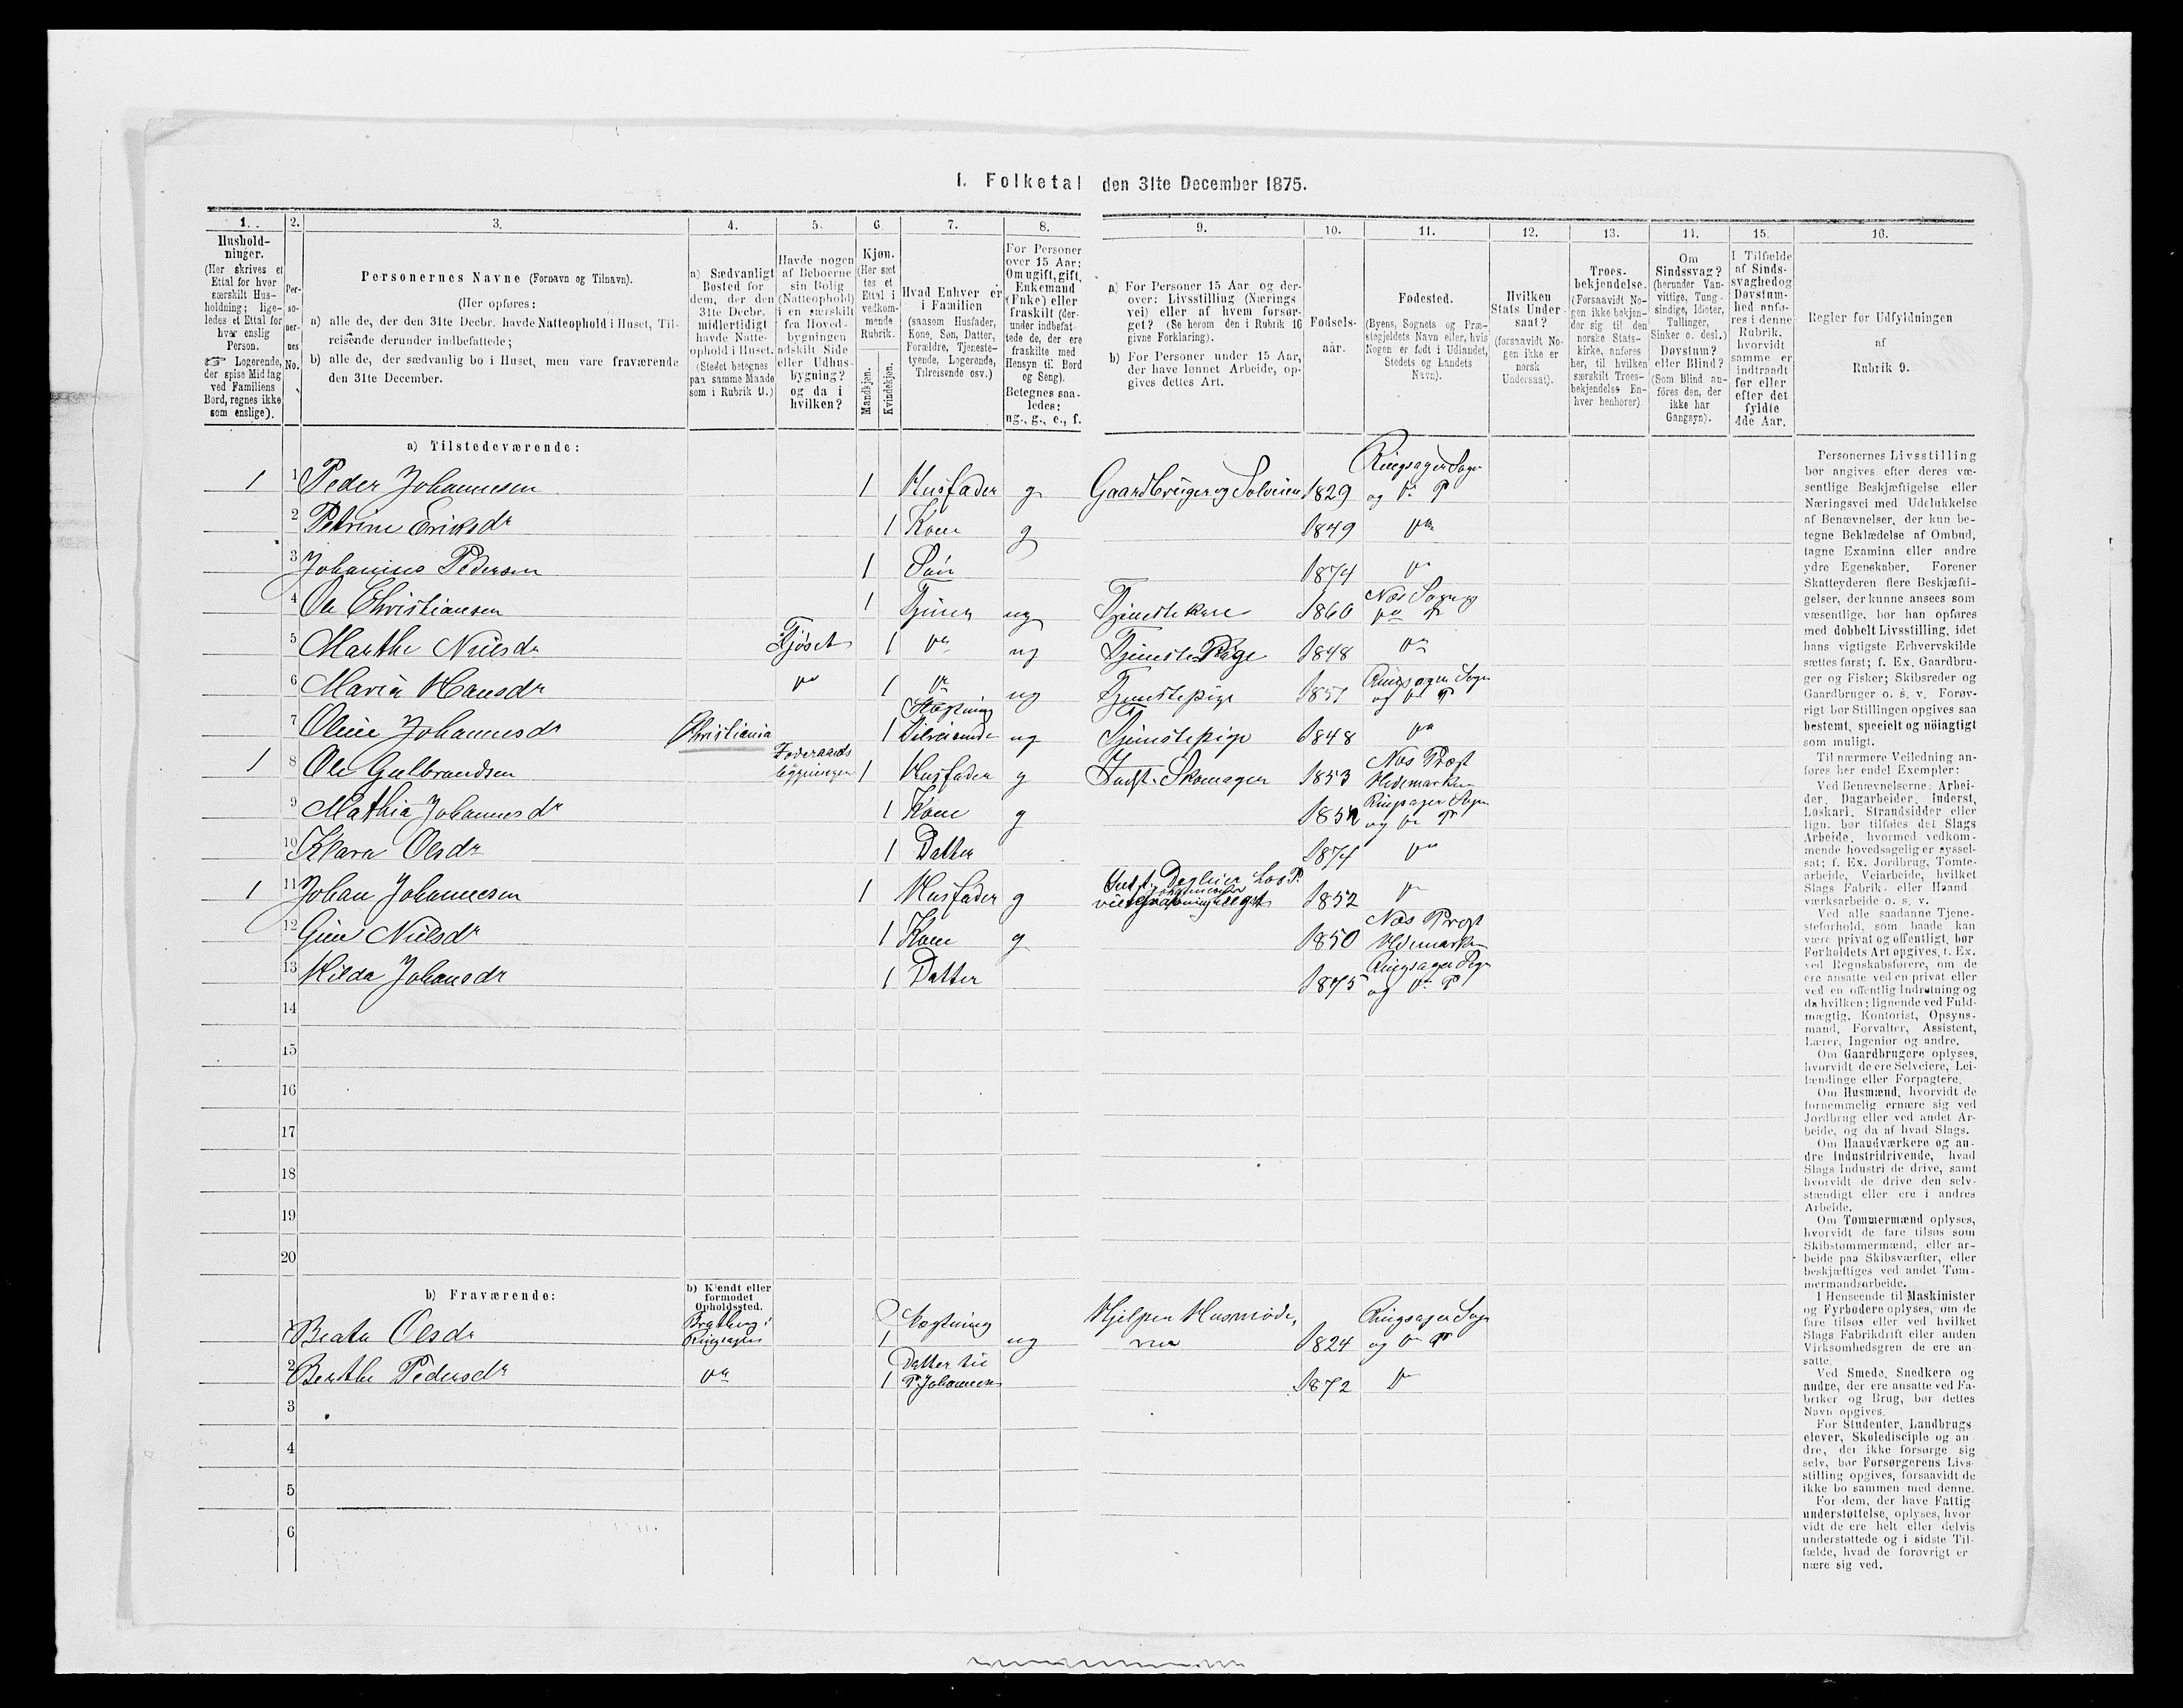 I. Folketal den 31te December 1875.
1. 2. 3. 4. 5. 6. 7. 8. 9. 10. 11. 12. 13. 14. 15. 16.
Hushold-
ninger.
(Her skrives et
Ettal for hver
særskilt Hus-
holdning; lige-
ledes et Ettal for
hver enslig
Person.
☞ Logerende,
der spise Middag
ved Familiens
Bord, regnes ikke
som enslige).
Per-
so-
ner-
nes
No.
Personernes Navne (Fornavn og Tilnavn).
(Her opføres:
a) alle de, der den 31te Decbr. havde Natteophold i Huset, Til-
reisende derunder indbefattede;
b) alle de, der sædvanlig bo i Huset, men vare fraværende
den 31te December.
a) Sædvanligt
Bosted for
dem, der den
31te Decbr.
midlertidigt
havde Natte-
ophold i Huset.
(Stedet betegnes
paa samme Maade
som i Rubrik 9.)
Havde nogen
af Beboerne
sin Bolig
(Natteophold)
i en særskilt
fra Hoved-
bygningen
adskilt Side
eller Udhus-
bygning?
og da i
hvilken?
Kjøn.
(Her sæt
tes et
Ettal i
vedkom-
mende
Rubrik.
Mandkjøn.
Kvindekjøn.
Hvad Enhver er
i Familien
(saasom Husfader,
Kone, Søn, Datter,
Forældre, Tjeneste-
tyende, Logerende,
Tilreisende osv.)
For Personer
over 15 Aar:
Om ugift, gift,
Enkemand
(Enke) eller
fraskilt (der-
under indbefat-
tede de, der ere
fraskilte med
Hensyn til Bord
og Seng).
Betegnes saa-
ledes:
ug., g., e., f.
a) For Personer 15 Aar og der-
over: Livsstilling (Nærings
vei) eller af hvem forsør-
get? (Se herom den i Rubrik 16
givne Forklaring).
b) For Personer under 15 Aar,
der have lønnet Arbeide, op-
gives dettes Art.
Fødsels-
aar.
Fødested.
(Byens, Sognets og Præ-
stegjeldets Navn eller, hvis
Nogen er født i Udlandet,
Stedets og Landets
Navn).
Hvilken
Stats Under-
saat?
(forsaavidt No-
gen ikke er
norsk
Undersaat).
Troes-
bekjendelse.
(Forsaavidt No-
gen ikke bekjen-
der sig til den
norske Stats-
kirke, anføres
her, til hvilken
særskilt Troes-
bekjendelse En-
hver henhører).
Om
Sindssvag?
(herunder Van-
vittige, Tung-
sindige, Idioter,
Tullinger,
Sinker o. desl.)
Døvstum?
eller Blind?
(Som Blind an-
føres den, der
ikke har
Gangsyn).
I Tilfælde
af Sinds-
svaghed og
Døvstum-
hed anfø-
res i denne
Rubrik,
hvorvidt
samme er
indtraadt
før eller
efter det
fyldte
4de Aar.
Regler for Udfyldningen
af
Rubrik 9.
a) Tilstedeværende:
1 1 Peder Johannesen 1 Husfader g Gaardbruger og Selveier 1829 Ringsager Sogn og do P
2 Petrine Eriksdr 1 Kone g 1849 do
3 Johannes Pedersen 1 Søn 1874 do
4 Ole Christiansen 1 Tjener ug Tjenestekarl 1860 Næs Sogn og do P
5 Marthe Nielsdr Fjøset 1 do ug Tjeneste Pige 1848 do
6 Maria Hansdr do 1 do ug Tjenestepige 1851 Ringsager Sogn og do P
7 Oline Johannesdr Christiania 1 Slægtning Tilreisende ug Tjenestepige 1848 do
1 8 Ole Gulbrandsen Føderaads bygningen 1 Husfader g Indst. Skomager 1853 Næs Præst Hedemarken
9 Mathia Johannesdr 1 Kone g 1852 Ringsager Sogn og do P
10 Klara Olsdr 1 Datter 1874 do
1 11 Johan Johannesen 1 Husfader g 1852 do
12 Nielsdr 1 Kone g 1850 Næs Præst Hedemarken
13 Hilda Johansdr 1 Datter 1875 Ringsager Sogn og do P
14
15
16
17
18
19
20
b) Fraværende:
b) Kjendt eller
formodet
Opholdssted.
1 Beata Olsdr Bratberg i Ringsager 1 Slægtning ug Hjelper Husmode, ren 1824 Ringsager Sogn og do P
2 Berthe Pedersdr do 1 Datter til P. Johannesen 1872 do
3
4
5
6
Personernes Livsstilling
bør angives efter deres væ-
sentlige Beskjæftigelse eller
Næringsvei med Udelukkelse
af Benævnelser, der kun be-
tegne Beklædelse af Ombud,
tagne Examina eller andre
ydre Egenskaber. Forener
Skatteyderen flere Beskjæfti-
gelser, der kunne ansees som
væsentlige, bør han opføres
med dobbelt Livsstilling, idet
hans vigtigste Erhvervskilde
sættes først; f. Ex. Gaardbru-
ger og Fisker; Skibsreder og
Gaardbruger o. s. v. Forøv-
rigt bør Stillingen opgives saa
bestemt, specielt og nöiagtigt
som muligt.
Til nærmere Veiledning an-
føres her endel Exempler:
Ved Benævnelserne: Arbei-
der, Dagarbeider, Inderst,
Løskarl, Strandsidder eller
lign. bør tilføies det Slags
Arbeide, hvormed vedkom-
mende hovedsagelig er syssel-
sat; f. Ex. Jordbrug, Tomte-
arbeide, Veiarbeide, hvilket
Slags Fabrik- eller Haand
værksarbeide o. s. v.
Ved alle saadanne Tjene-
steforhold, som baade kan
være privat og offentligt, bør
Forholdets Art opgives, f. Ex.
ved Regnskabsførere, om de
ere ansatte ved en privat eller
ved en offentlig Indretning og
da hvilken; lignende ved Fuld-
mægtig, Kontorist, Opsyns-
mand, Forvalter, Assistent,
Lærer, Ingeniør og andre.
Om Gaardbrugere oplyses,
hvorvidt de ere Selveiere, Lei-
lændinge eller Forpagtere.
Om Husmænd, hvorvidt de
fornemmelig ernære sig ved
Jordbrug eller ved andet Ar-
beide, og da af hvad Slags.
Om Haandværkere og an-
dre Industridrivende, hvad
Slags Industri de drive, samt
hvorvidt de drive den selv-
stændigt eller ere i andres
Arbeide.
Om Tømmermænd oplyses,
hvorvidt de fare tilsøs som
Skibstømmermænd, eller ar-
beide paa Skibsværfter, eller
beskjæftiges ved andet Tøm-
mermandsarbeide.
I Henseende til Maskinister
og Fyrbødere oplyses, om de
fare tilsøs eller ved hvilket
Slags Fabrikdrift eller anden
Virksomhedsgren de ere an-
satte.
Ved Smede, Snedkere og
andre, der ere ansatte ved Fa-
briker og Brug, bør dettes
Navn opgives.
For Studenter, Landbrugs
elever, Skoledisciple og an
dre, der ikke forsørge sig
selv, bør Forsørgerens Livs-
stilling opgives, forsaavidt de
ikke bo sammen med denne.
For dem, der have Fattig-
understøttelse, oplyses, hvor
vidt de ere helt eller delvis
understøttede og i sidste Til-
fælde, hvad de forøvrigt er
nære sig ved.